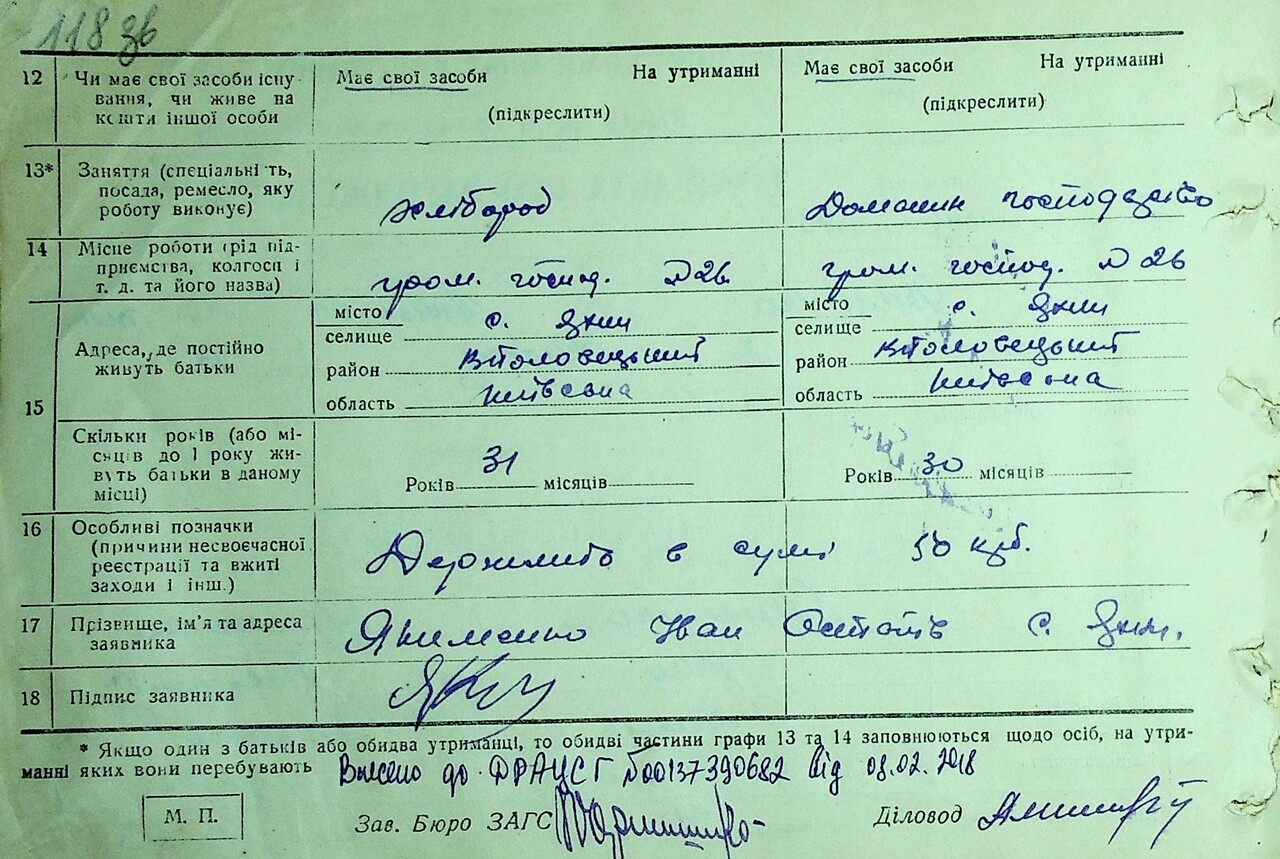 118 зв
12 Чи має свої засоби існу- Має свої засоби На утриманні Має свої засоби На утриманні
вання, чи живе на (підкреслити) (підкреслити)
кошти іншої особи
13* Заняття (спеціальність,
посада, ремесло, яку хлібороб Домашнє господарство
роботу виконує)
14 Місце роботи (рід під-
приємства, колгосп і гром. господ. гром. господ.
т. д. та його назва)
15 Адреса, де постійно живуть батьки
місто с. місто с.
селище селище
район район
область Київська область Київська
Скільки років (або мі-
сяців до 1 року жи-
вуть батьки в даному Років 31 місяців Років 30 місяців
місці)
16 Особливі позначки
(причини несвоєчасної в сумі 50 крб.
реєстрації та вжиті
заходи і інш.)
17 Прізвище, ім'я та адреса Якименко Іван с.
заявника
18 Підпис заявника
* Якщо один з батьків або обидва утриманці, то обидві частини графи 13 та 14 заповнюються щодо осіб, на утри-
манні яких вони перебувають Внесено до ДРАЦСГ №00137390682 від 08.02.2018
М. П. Зав. Бюро ЗАГС Діловод